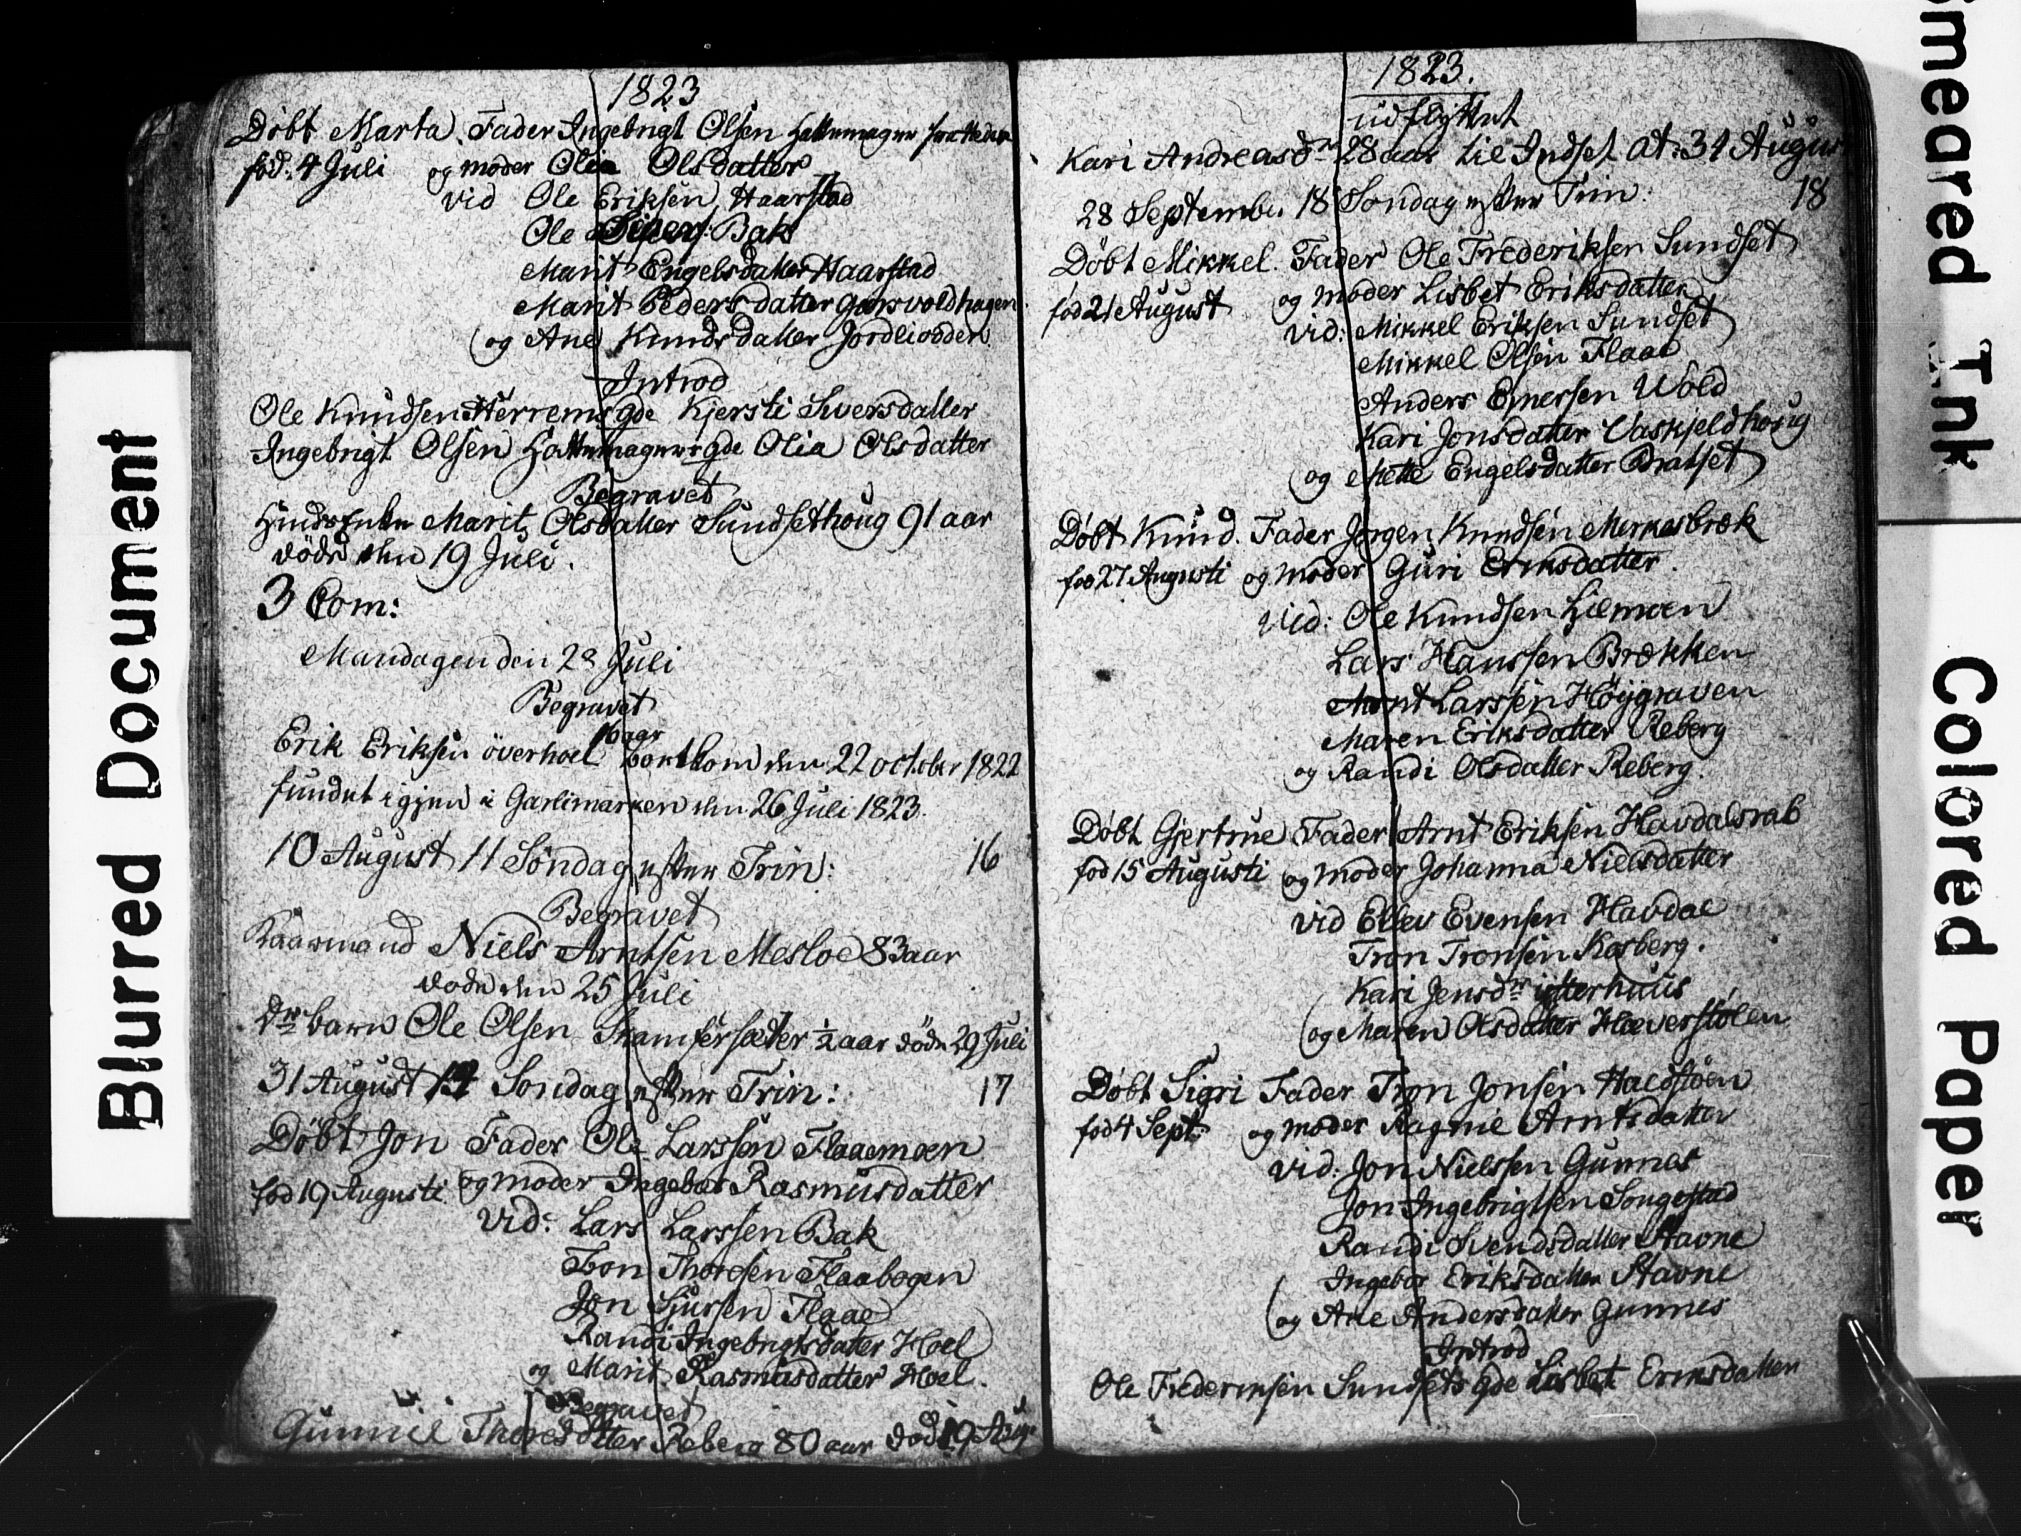 1823
Döbt Marta. Fader Ingebrigt Olsen Hattemager
fød: 4 Juli og moder Olia Olsdatter
vid Ole Eriksen Haarstad
Ole Bak
Marit Engelsdatter Haarstad
Marit Pedersdatter Gorsvoldhagen
og Ane Knudsdatter Jordliodden
Introd
Ole Knudsen Herrems gde Kjersti Siversdatter
Ingebrigt Olsen Hattemagers gde Olia Olsdatter
Begravet
Marit Olsdatter Sundsethoug 91 aar
döde den 19 Juli.
3 Com:
Mandagen den 28 Juli
Begravet
16 aar
Erik Eriksen överhoel bortkom den 22 october 1822
fundet igjen i Garlimarken den 26 Juli 1823.
10 August 11 Söndag efter Trin: 16
Begravet
Kaarmand Niels Arntsen Mesloe 83 aar
döde den 25 Juli
barn Ole Olsen Skamfersæter ½ aar döde 29 Juli
31 August 14 Söndag efter Trin: 17
Döbt Jon Fader Ole Larssen Flaaemoen
fød 19 Augusti og moder Ingebor Rasmusdatter
vid: Lars Larssen Bak
Thoresen Flaabogen
Jon Sjursen Flaae
Randi Ingebrigtsdatter Hoel
og Marit Rasmusdatter Hoel.
Begravet
Gunnil Thoresdatter Reberg 80 aar död 19 Aug:
1823.
udflyttet
Kari Andreasdr 28 aar til Indset at: 31 August
28 September 18 Söndag efter Trin: 18
Döbt Mikkel. Fader Ole Frederiksen Sundset
fød 21 August og moder Lisbet Eriksdatter
vid: Mikkel Eriksen Sundset
Mikkel Olsen Flaae
Anders Wold
Kari Jonsdatter Vaskjeldhoug
og Mette Engelsdatter Bratset
Döbt Knud. Fader Jörgen Knudsen Merkesbræk
fød 27 Augusti og moder Guri Eriksdatter.
vid: Ole Knudsen Liemoen
Lars Hanssen Brækken
Arnt Larssen Höygraven
Maren Eriksdatter Reberg
og Randi Olsdatter Reberg.
Döbt Gjertrue Fader Arnt Eriksen Havdalsrab
fød 15 Augusti og moder Johanna Nielsdatter
vid Ellev Evensen Havdal
Tron Tronsen Kosberg.
Kari Jensdr ytterhuus
og Maren Olsdatter Hæverstölen
Döbt Sigri Fader Tron Jonsen Haldstöen
fød 4 Sept: og moder Ragnil Arntsdatter
vid: Jon Nielssen Gunnes
Jon Ingebrigtsen Songestad
Randi Svendsdatter Stavne
Ingebor Eriksdatter Stavne
og Ane Andersdatter Gunnes
Introd
Ole Frederiksen Sundsets gde Lisbet Eriksdatter
Blurred Document
Smeared Ink
Colored Paper